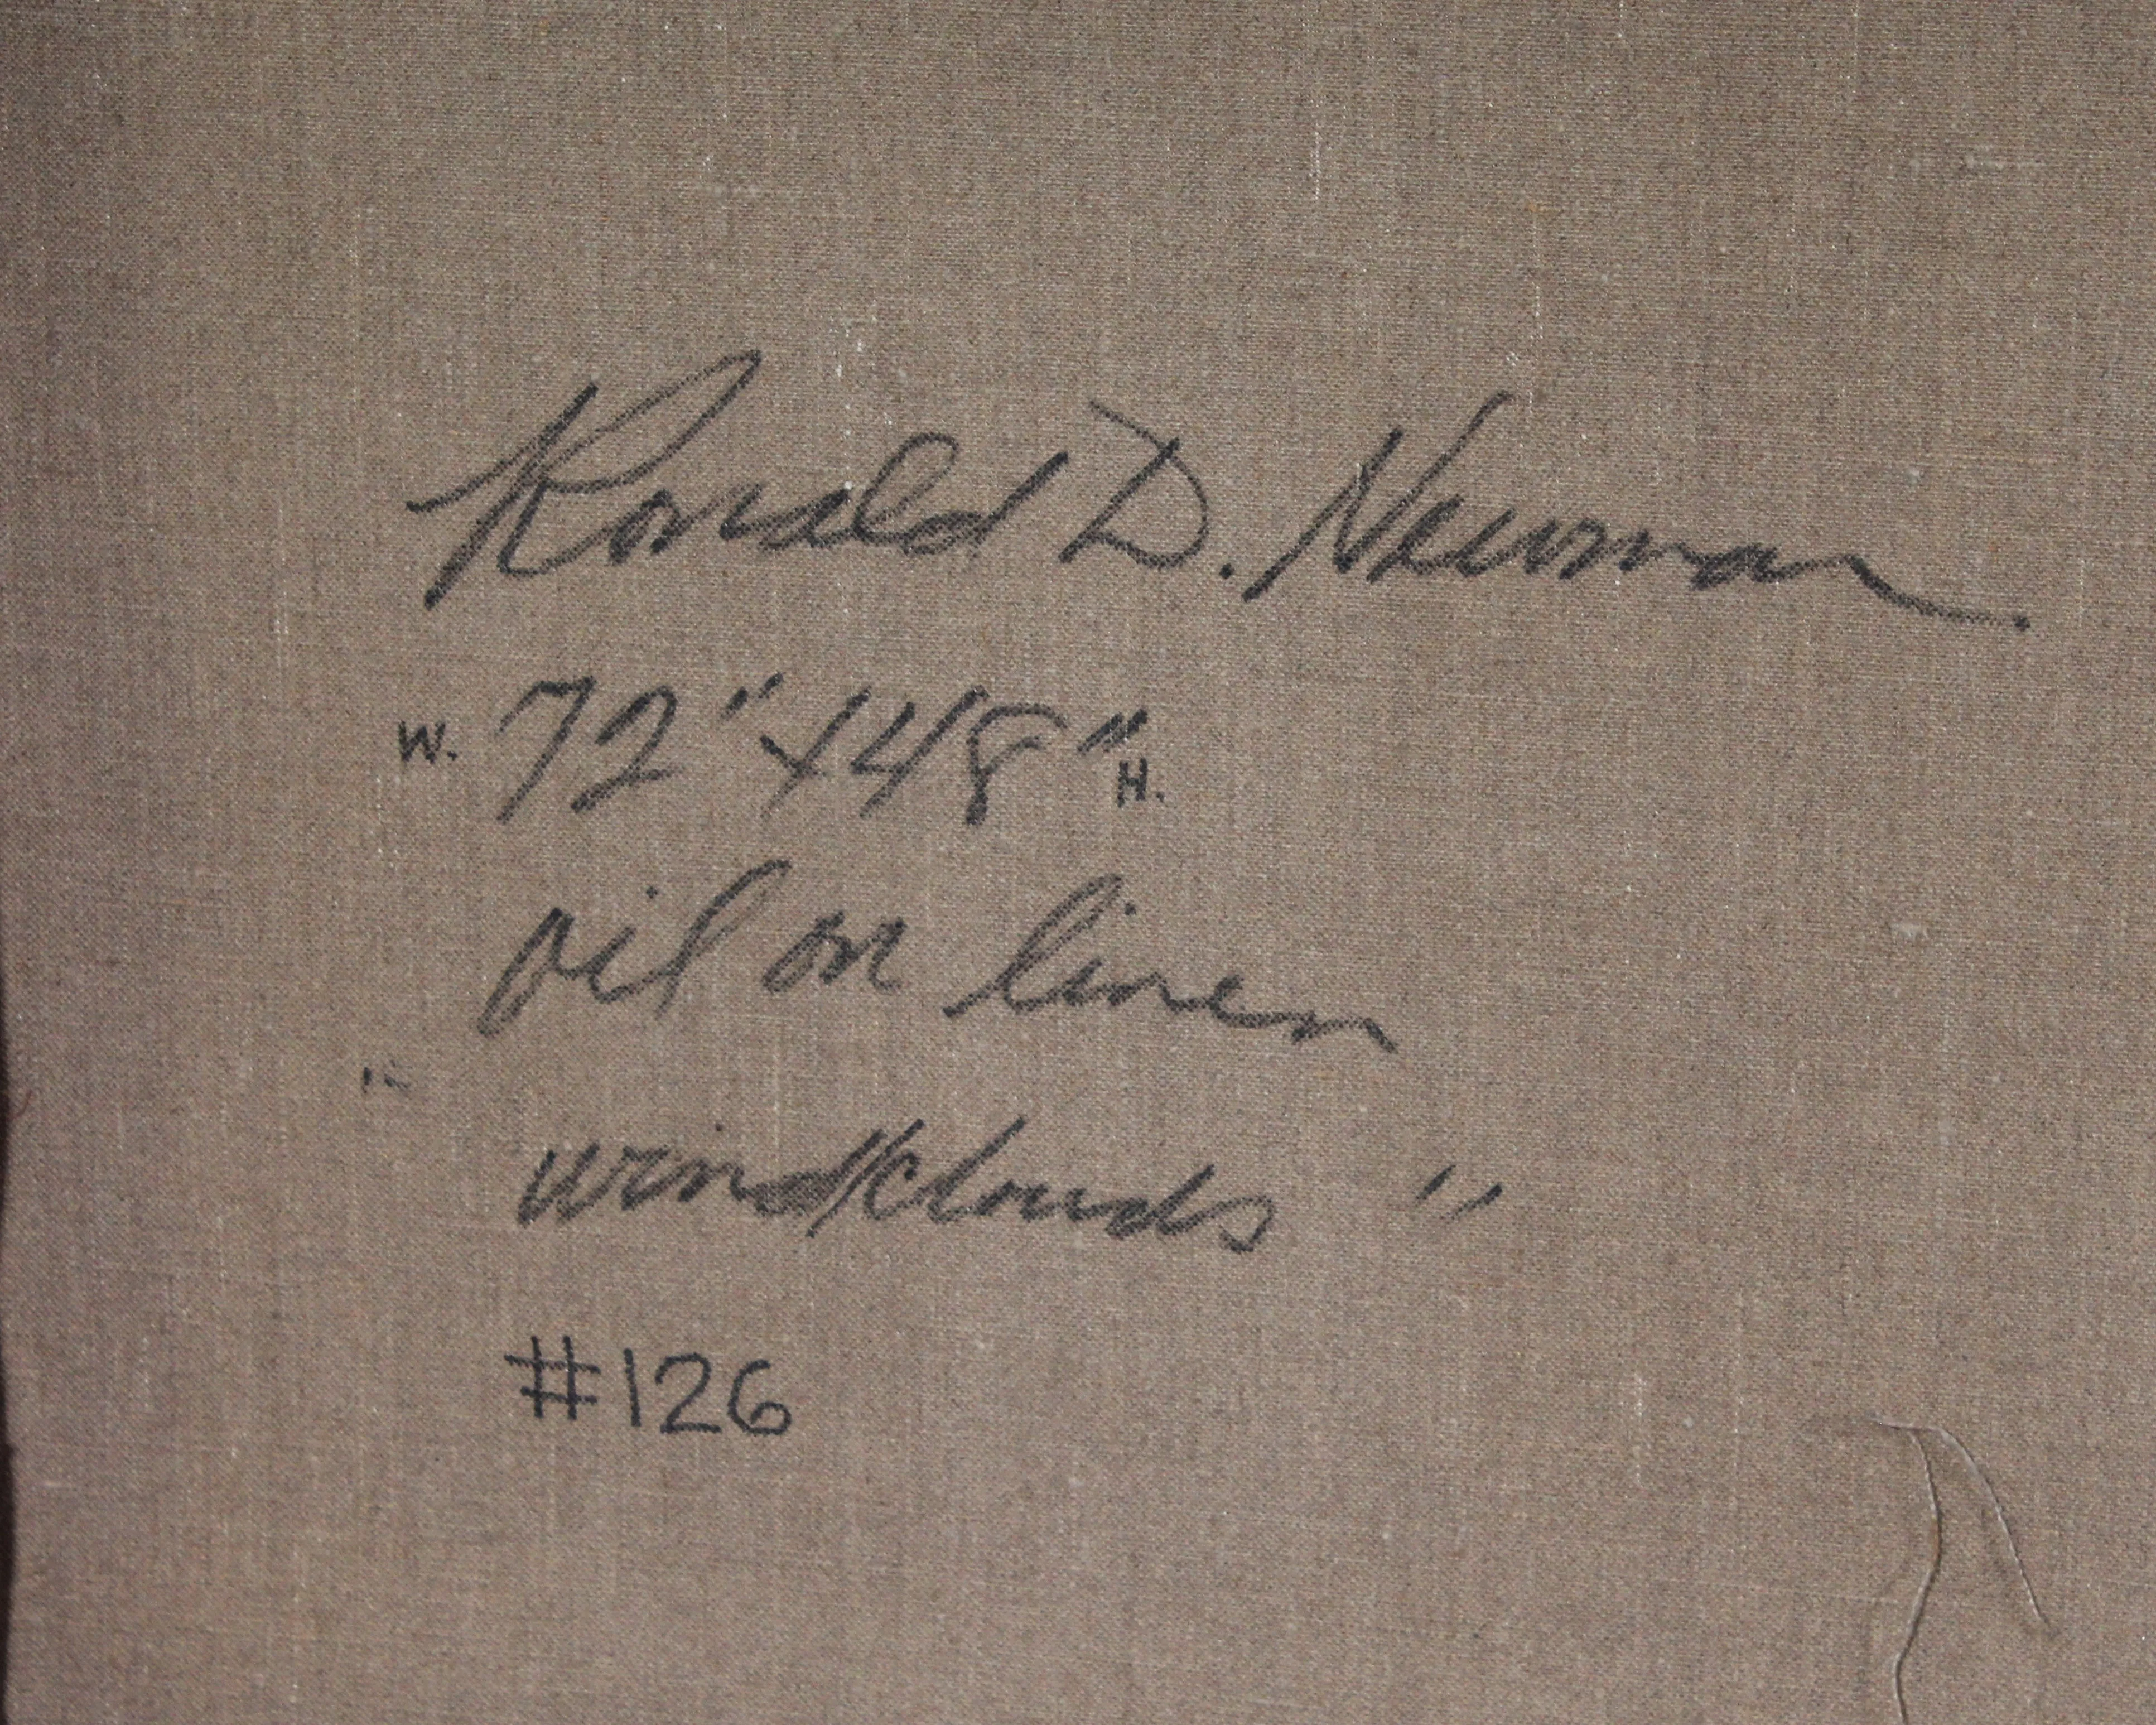 Ronald D. Newman
W. 72" x 48" H.
oil on linen
"
wind/clouds "
#126